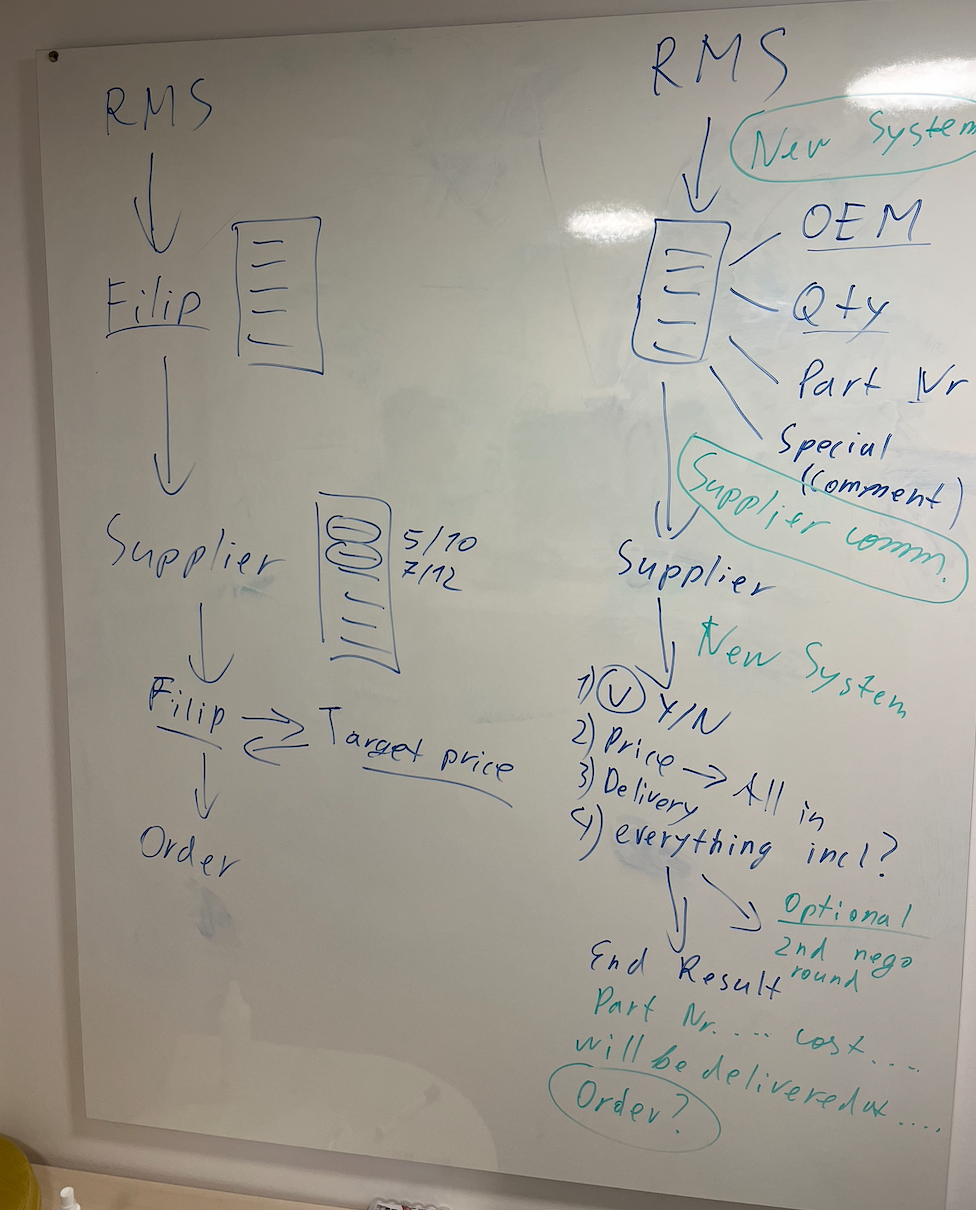 RMS
Filip
Supplier
5/10
7/12
Filip
Target price
Order
RMS
New System
OEM
Qty
Part Nr
Special
(Comment)
Supplier comm.
Supplier
New System
1) V Y/N
2) Price → All in
3) Delivery
4) everything incl?
Optional
2nd nego
round
End Result
Part Nr.... cost....
will be delivered at ....
Order?